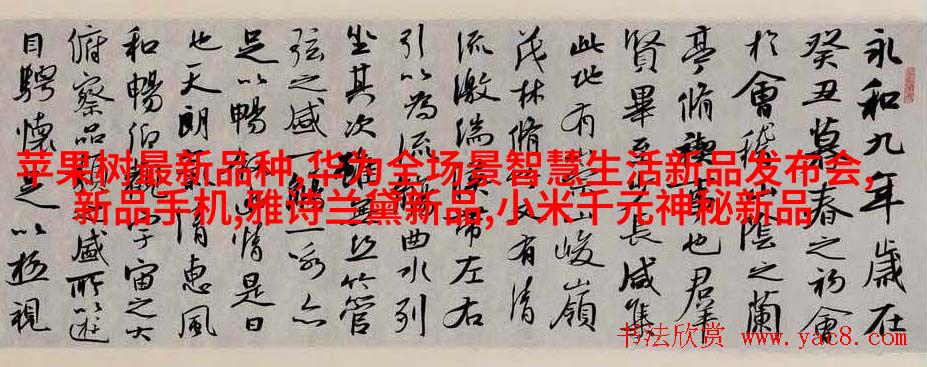 永和九年歲在
癸丑暮春之初會
於會稽山陰之蘭
亭脩禊也群
賢畢至少長咸集
此地有山峻嶺
茂林脩又有清
流激湍映帶左右
引以為流觴曲水列
坐其次雖無絲竹管
弦之盛一觴一詠亦
足以暢情是日
也天朗清惠風
和暢仰觀宇宙之大
俯察品類盛所以遊
目騁懷足以極視
苹果树最新品种,华为全场景智慧生活新品发布会,
新品手机,雅诗兰黛新品,小米千元神秘新品
书法欣赏 www.yac8.com